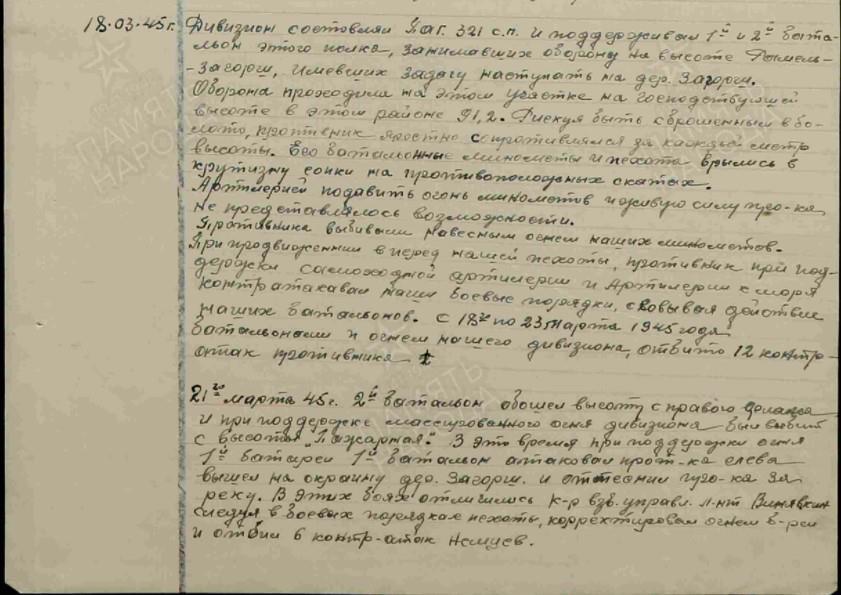 18.03.45г. Дивизион составлял ПАГ. 321 с.п. и поддерживал 1й и 2й баталь-
льон этого полка, занимавших оборону на высоте
-Загорш, имевших задачу наступать на дер. Загорш.
Оборона проходила на этом участке на господствующей
высоте в этом районе 91,2. Рискуя быть сброшенным в бо-
лото, противник яростно сопротивлялся за каждый метр
высоты. Его батальонные минометы и пехота врылись в
крутизну сопки на противоположных скатах.
Артилерией подавить огонь минометов и живую силу пр-ка
не представлялось возможности.
Противника выбивали навесным огнем наших минометов.
При продвижении вперед нашей пехоты, противник при под-
держки самоходной артилерии и Артилерии с моря
контратаковал наши боевые порядки, сковывая действие
наших батальонов. С 18го по 23 марта 1945 года
батальонами и огнем нашего дивизиона, отбито 12 контр-
атак противника
21го марта 45г. 2й батальон обошел высоту с правого фланга
и при поддержке массированного огня дивизиона был выбит
с высоты "Пажарная". В это время при поддержки огня
1й батареи 1й батальон атаковал прот-ка слева
вышел на окраину дер. Загорш. и оттеснил пр-ка за
реку. В этих боях отличились к-р взв. управл. л-нт
следуя в боевых порядках пехоты, корректировал огнем б-реи
и отбил 6 контр-атак Немцев.